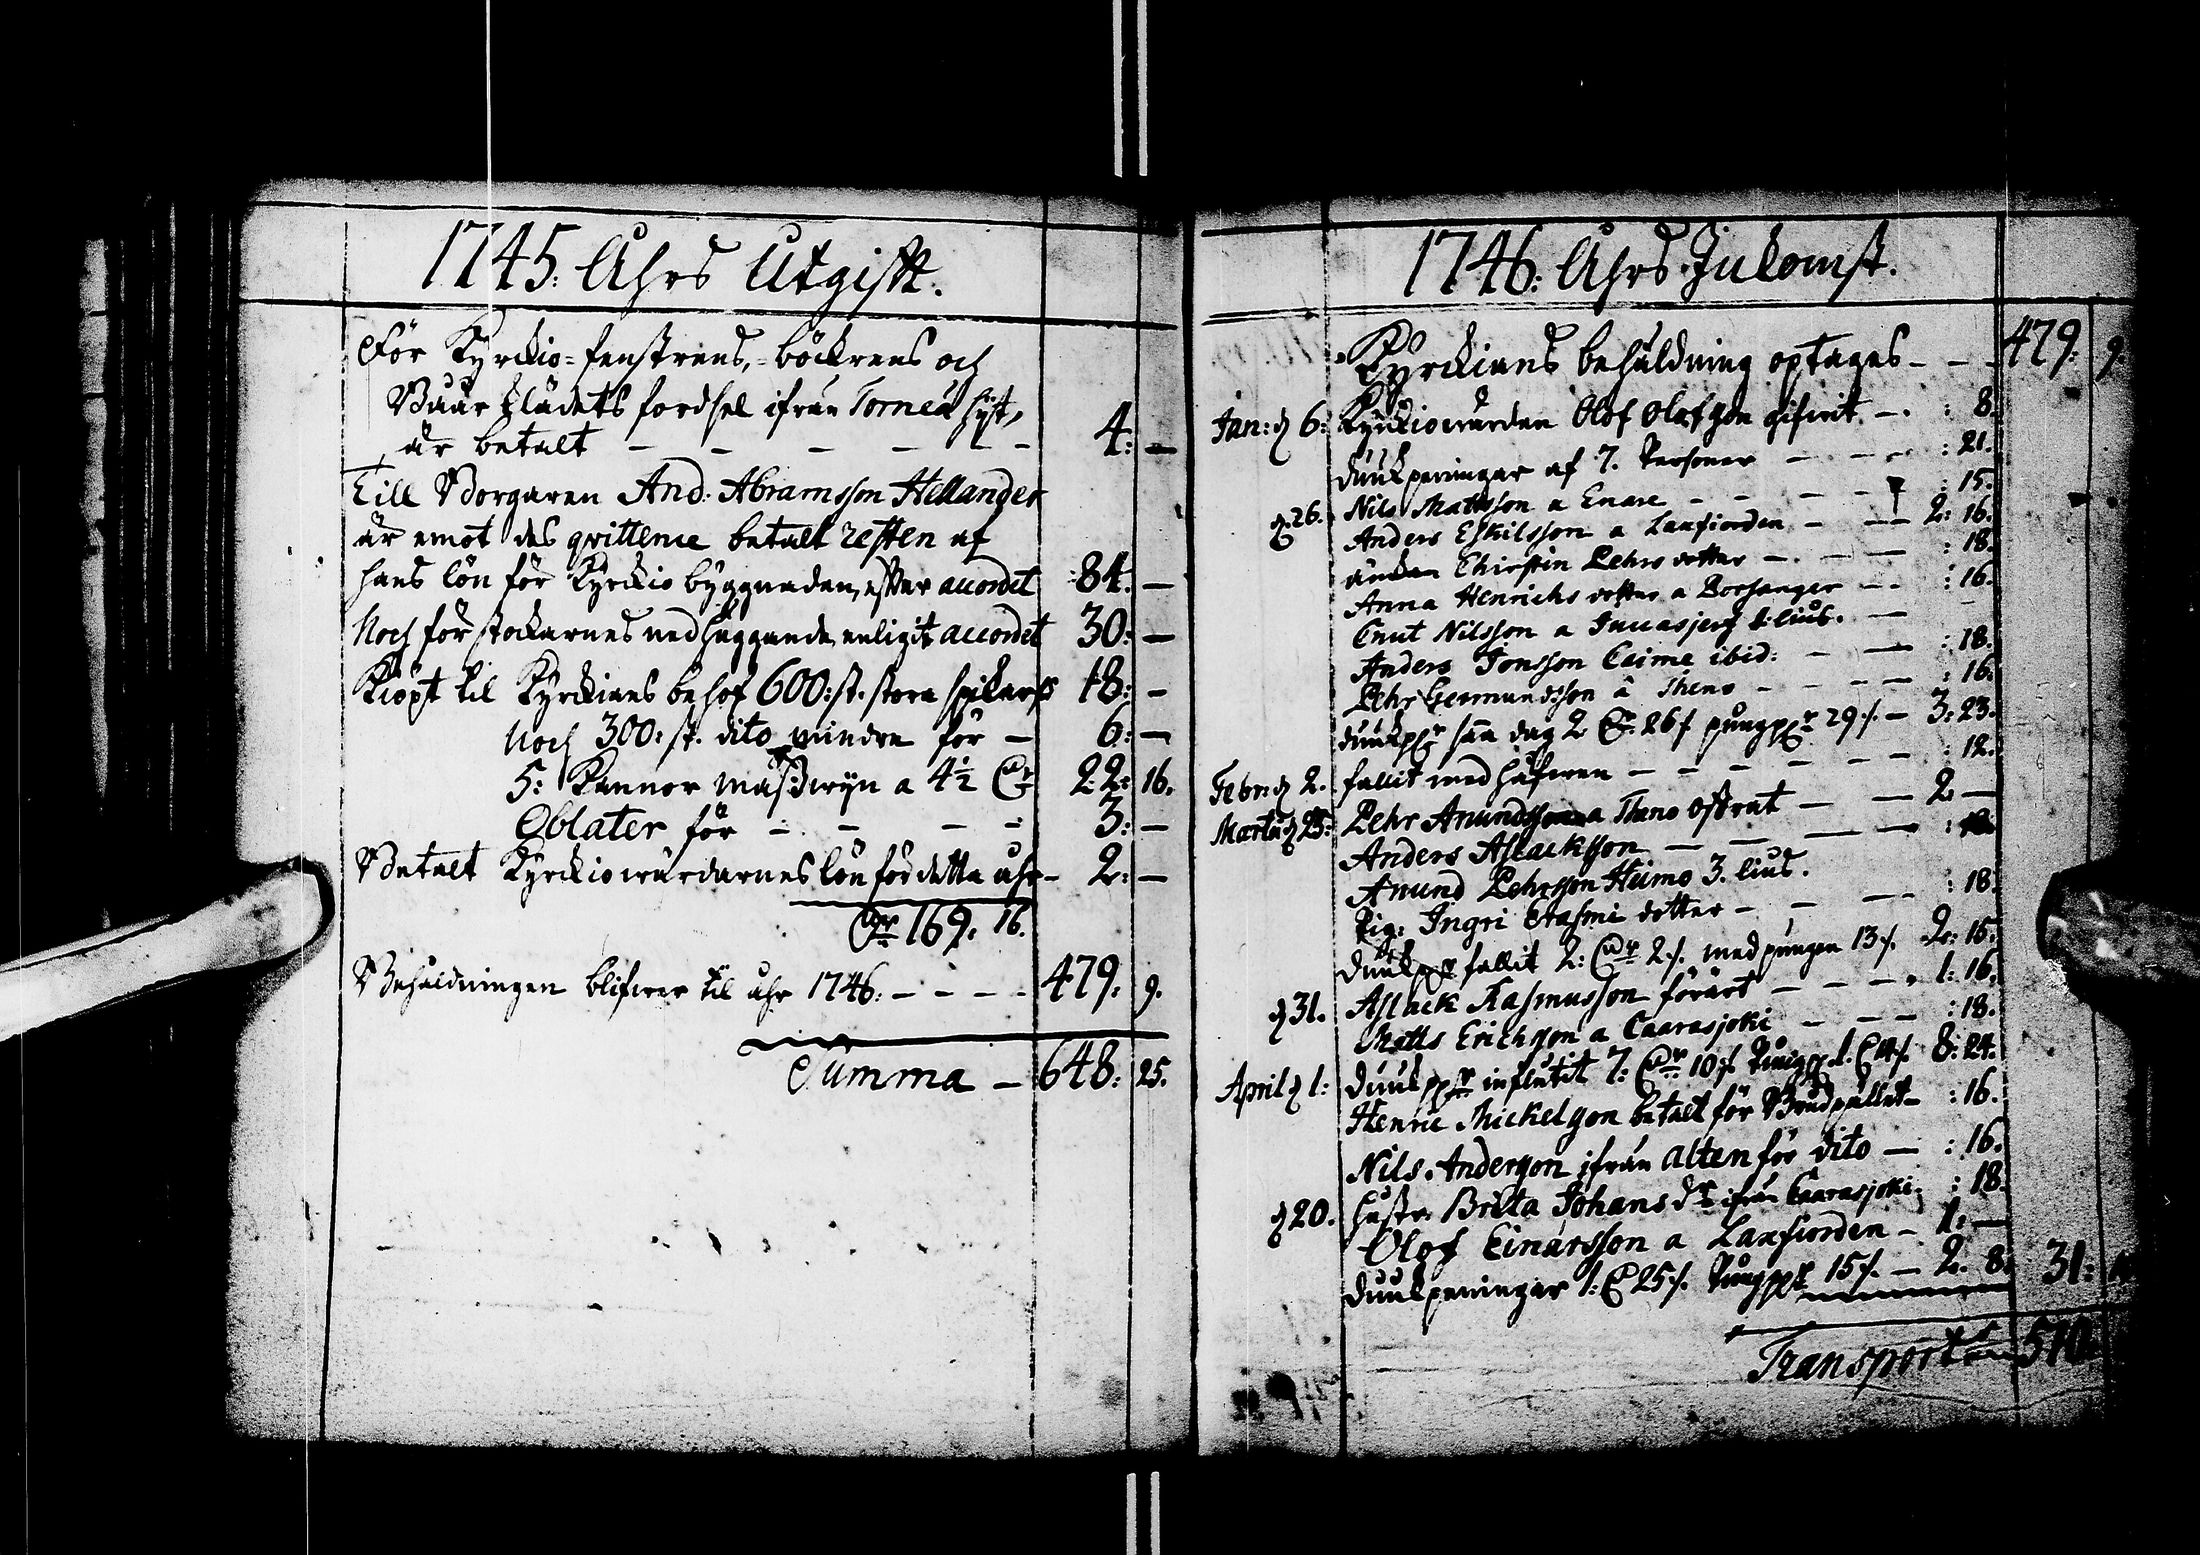 1745. Ahrs Utgift.
För Kyrckio-fenstrens, böckrens och
Altar klädets fordsel ifrån Torneå hijt,
är betalt — — — — — 4: —
Till Borgaren And: Abramsson Hellander
är emot des qvittence betalt resten af
hans lön för Kyrckio byggnaden, efter accordet :84. —
Noch för stockarnes nedhuggande enligit accordet 30: —
Kiöpt til Kyrckians behof 600: st. stora spikar 18: —
Noch 300: st. dito mindre för — 6: —
5: Kannor mässwijn a 4½ 22: 16.
Oblater för — — — — 3: —
Betalt Kyrckiowärdarnes lön för detta ahr — 2: —
169. 16.
Behåldningen blifwer til ahr 1746: — — — 479. 9.
Summa — 648: 25.
1746: Ahrs Inkomst.
Kyrckians behåldning optages — — 479: 9.
Jan: d 6: Kyrckiowärden Olof Olofson gifwit — . : 8.
duukpeningar af 7. Personer — — — : 21.
d 26. Nils Mattsson a Enare — — — — : 15.
Anders Eskilsson a Laxfiorden — — 2: 16.
änckan Chirstin Pehrs dotter — — — : 18.
Anna Henrichs dotter a Porsanger — — : 16.
Cnut Nilsson a Juccasjerf 1. lius. —
Anders Jonsson Caime ibid: — — : 18.
Pehr Germundsson â Theno — — — — : 16.
duukp. samma dag 2 26 f pungp. 29. f. — 3: 23.
Febr: d 2. fallit med håfwen — — — — — : 12.
Martii d 25: Pehr Amundsson a Theno offrat — — 2 —
Anders Aslacksson — — — — : 18.
Amund Pehrsson Heimo 3. lius.
Pig: Ingri Erasmi dotter — — — : 18.
duukp. fallit 2: 2 f. med pungen 13 f. 2: 15:
d 31. Aslack Rasmusson förärt — — — . 1: 16.
Matts Erichson a Caarasjoki — — — : 18.
April d 1: duukp. influtit 7: 10 f. pungp. 1. 14 f. 8: 24.
Henric Mickelson betalt för Brudpallet — : 16.
Nils Anderson ifrån Alten för dito — : 16.
d 20. hustr. Brita Johans dr ifrån Caarasjoki. : 18.
Olof Einarsson a Laxfiorden — 1: —
duukpeningar 1: 25 f. pungp. 15 f. — 2. 8. 31:
Transport 510.